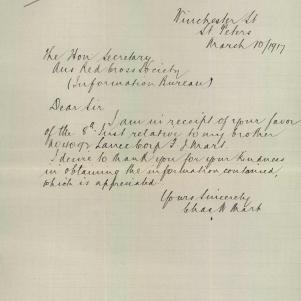 Winchester St
St Peters
March 10/1917
The Hon Secretary
Aus Red Cross Society
(Information Bureau)
Dear Sir
I am in receipt of your favor
of the 8th Inst relative to my brother
Lance Corp J Mart.
I desire to thank you for your kindness
in obtaining the information contained,
which is appreciated
Yours Sincerely
Chas W Mart